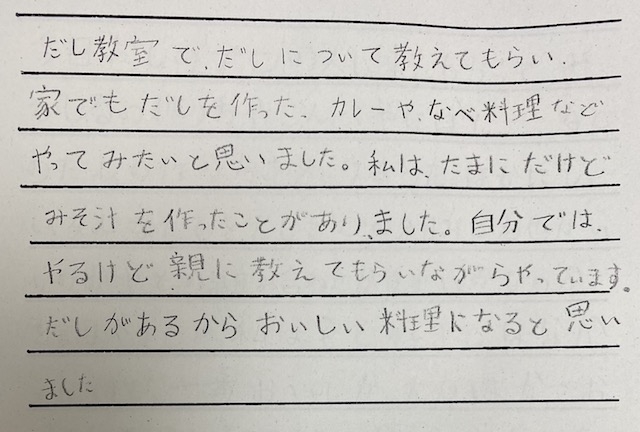 だし教室で、だしについて教えてもらい、
家でもだしを作った、カレーや、なべ料理など
やってみたいと思いました。私は、たまにだけど
みそ汁を作ったことがあり、ました。自分では、
やるけど親に教えてもらいながらやっています。
だしがあるからおいしい料理になると思い
ました